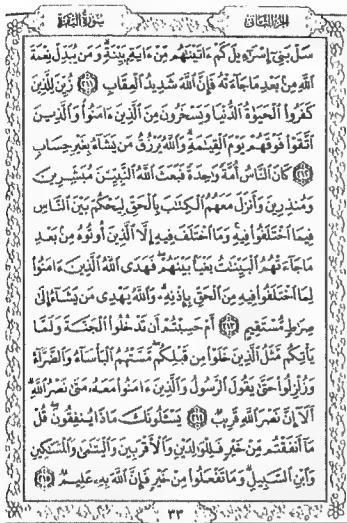 الجزء الثاني
سورة البقرة
سَلْ بَنِىٓ إِسْرَٰٓءِيلَ كَمْ ءَاتَيْنَٰهُم مِّنْ ءَايَةٍۭ بَيِّنَةٍ ۗ وَمَن يُبَدِّلْ نِعْمَةَ
ٱللَّهِ مِنۢ بَعْدِ مَا جَآءَتْهُ فَإِنَّ ٱللَّهَ شَدِيدُ ٱلْعِقَابِ ﴿٢١١﴾ زُيِّنَ لِلَّذِينَ
كَفَرُوا۟ ٱلْحَيَوٰةُ ٱلدُّنْيَا وَيَسْخَرُونَ مِنَ ٱلَّذِينَ ءَامَنُوا۟ ۘ وَٱلَّذِينَ
ٱتَّقَوْا۟ فَوْقَهُمْ يَوْمَ ٱلْقِيَٰمَةِ ۗ وَٱللَّهُ يَرْزُقُ مَن يَشَآءُ بِغَيْرِ حِسَابٍ
﴿٢١٢﴾ كَانَ ٱلنَّاسُ أُمَّةً وَٰحِدَةً فَبَعَثَ ٱللَّهُ ٱلنَّبِيِّۦنَ مُبَشِّرِينَ
وَمُنذِرِينَ وَأَنزَلَ مَعَهُمُ ٱلْكِتَٰبَ بِٱلْحَقِّ لِيَحْكُمَ بَيْنَ ٱلنَّاسِ
فِيمَا ٱخْتَلَفُوا۟ فِيهِ ۚ وَمَا ٱخْتَلَفَ فِيهِ إِلَّا ٱلَّذِينَ أُوتُوهُ مِنۢ بَعْدِ
مَا جَآءَتْهُمُ ٱلْبَيِّنَٰتُ بَغْيًۢا بَيْنَهُمْ ۖ فَهَدَى ٱللَّهُ ٱلَّذِينَ ءَامَنُوا۟
لِمَا ٱخْتَلَفُوا۟ فِيهِ مِنَ ٱلْحَقِّ بِإِذْنِهِۦ ۗ وَٱللَّهُ يَهْدِى مَن يَشَآءُ إِلَىٰ
صِرَٰطٍ مُّسْتَقِيمٍ ﴿٢١٣﴾ أَمْ حَسِبْتُمْ أَن تَدْخُلُوا۟ ٱلْجَنَّةَ وَلَمَّا
يَأْتِكُم مَّثَلُ ٱلَّذِينَ خَلَوْا۟ مِن قَبْلِكُم ۖ مَّسَّتْهُمُ ٱلْبَأْسَآءُ وَٱلضَّرَّآءُ
وَزُلْزِلُوا۟ حَتَّىٰ يَقُولَ ٱلرَّسُولُ وَٱلَّذِينَ ءَامَنُوا۟ مَعَهُۥ مَتَىٰ نَصْرُ ٱللَّهِ ۗ
أَلَآ إِنَّ نَصْرَ ٱللَّهِ قَرِيبٌ ﴿٢١٤﴾ يَسْـَٔلُونَكَ مَاذَا يُنفِقُونَ ۖ قُلْ
مَآ أَنفَقْتُم مِّنْ خَيْرٍ فَلِلْوَٰلِدَيْنِ وَٱلْأَقْرَبِينَ وَٱلْيَتَٰمَىٰ وَٱلْمَسَٰكِينِ
وَٱبْنِ ٱلسَّبِيلِ ۗ وَمَا تَفْعَلُوا۟ مِنْ خَيْرٍ فَإِنَّ ٱللَّهَ بِهِۦ عَلِيمٌ ﴿٢١٥﴾
٣٣